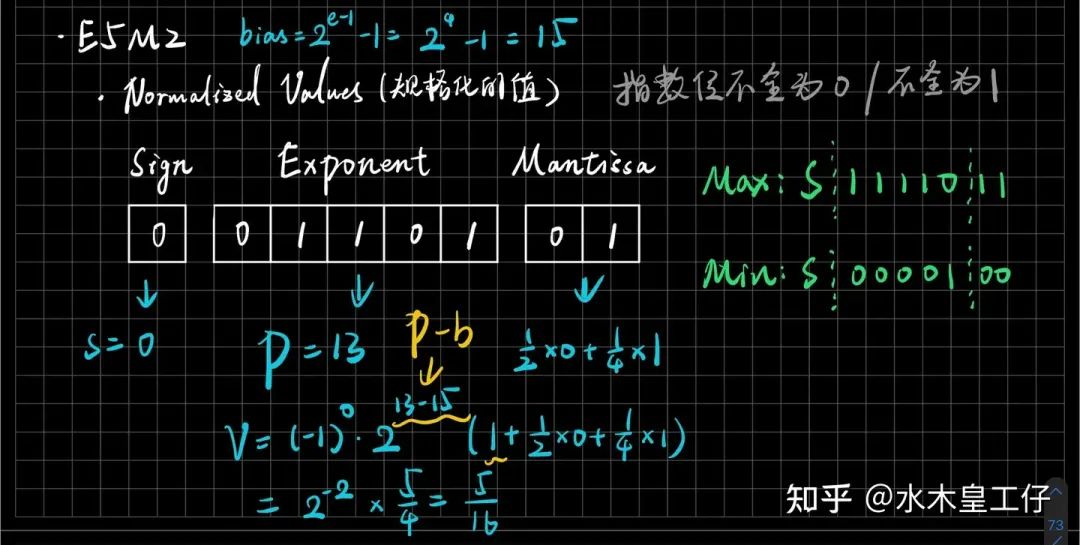 · E5M2 bias = 2^(e-1) - 1 = 2^4 - 1 = 15
· Normalized Values (规格化的值) 指数位不全为0/不全为1
Sign Exponent Mantissa
0 0 1 1 0 1 0 1
Max: S 11110 11
Min: S 00001 00
s = 0 P = 13 P-b 1/2 × 0 + 1/4 × 1
V = (-1)^0 · 2^(13-15) (1 + 1/2 × 0 + 1/4 × 1)
= 2^-2 × 5/4 = 5/16
知乎 @水木皇工仔
73